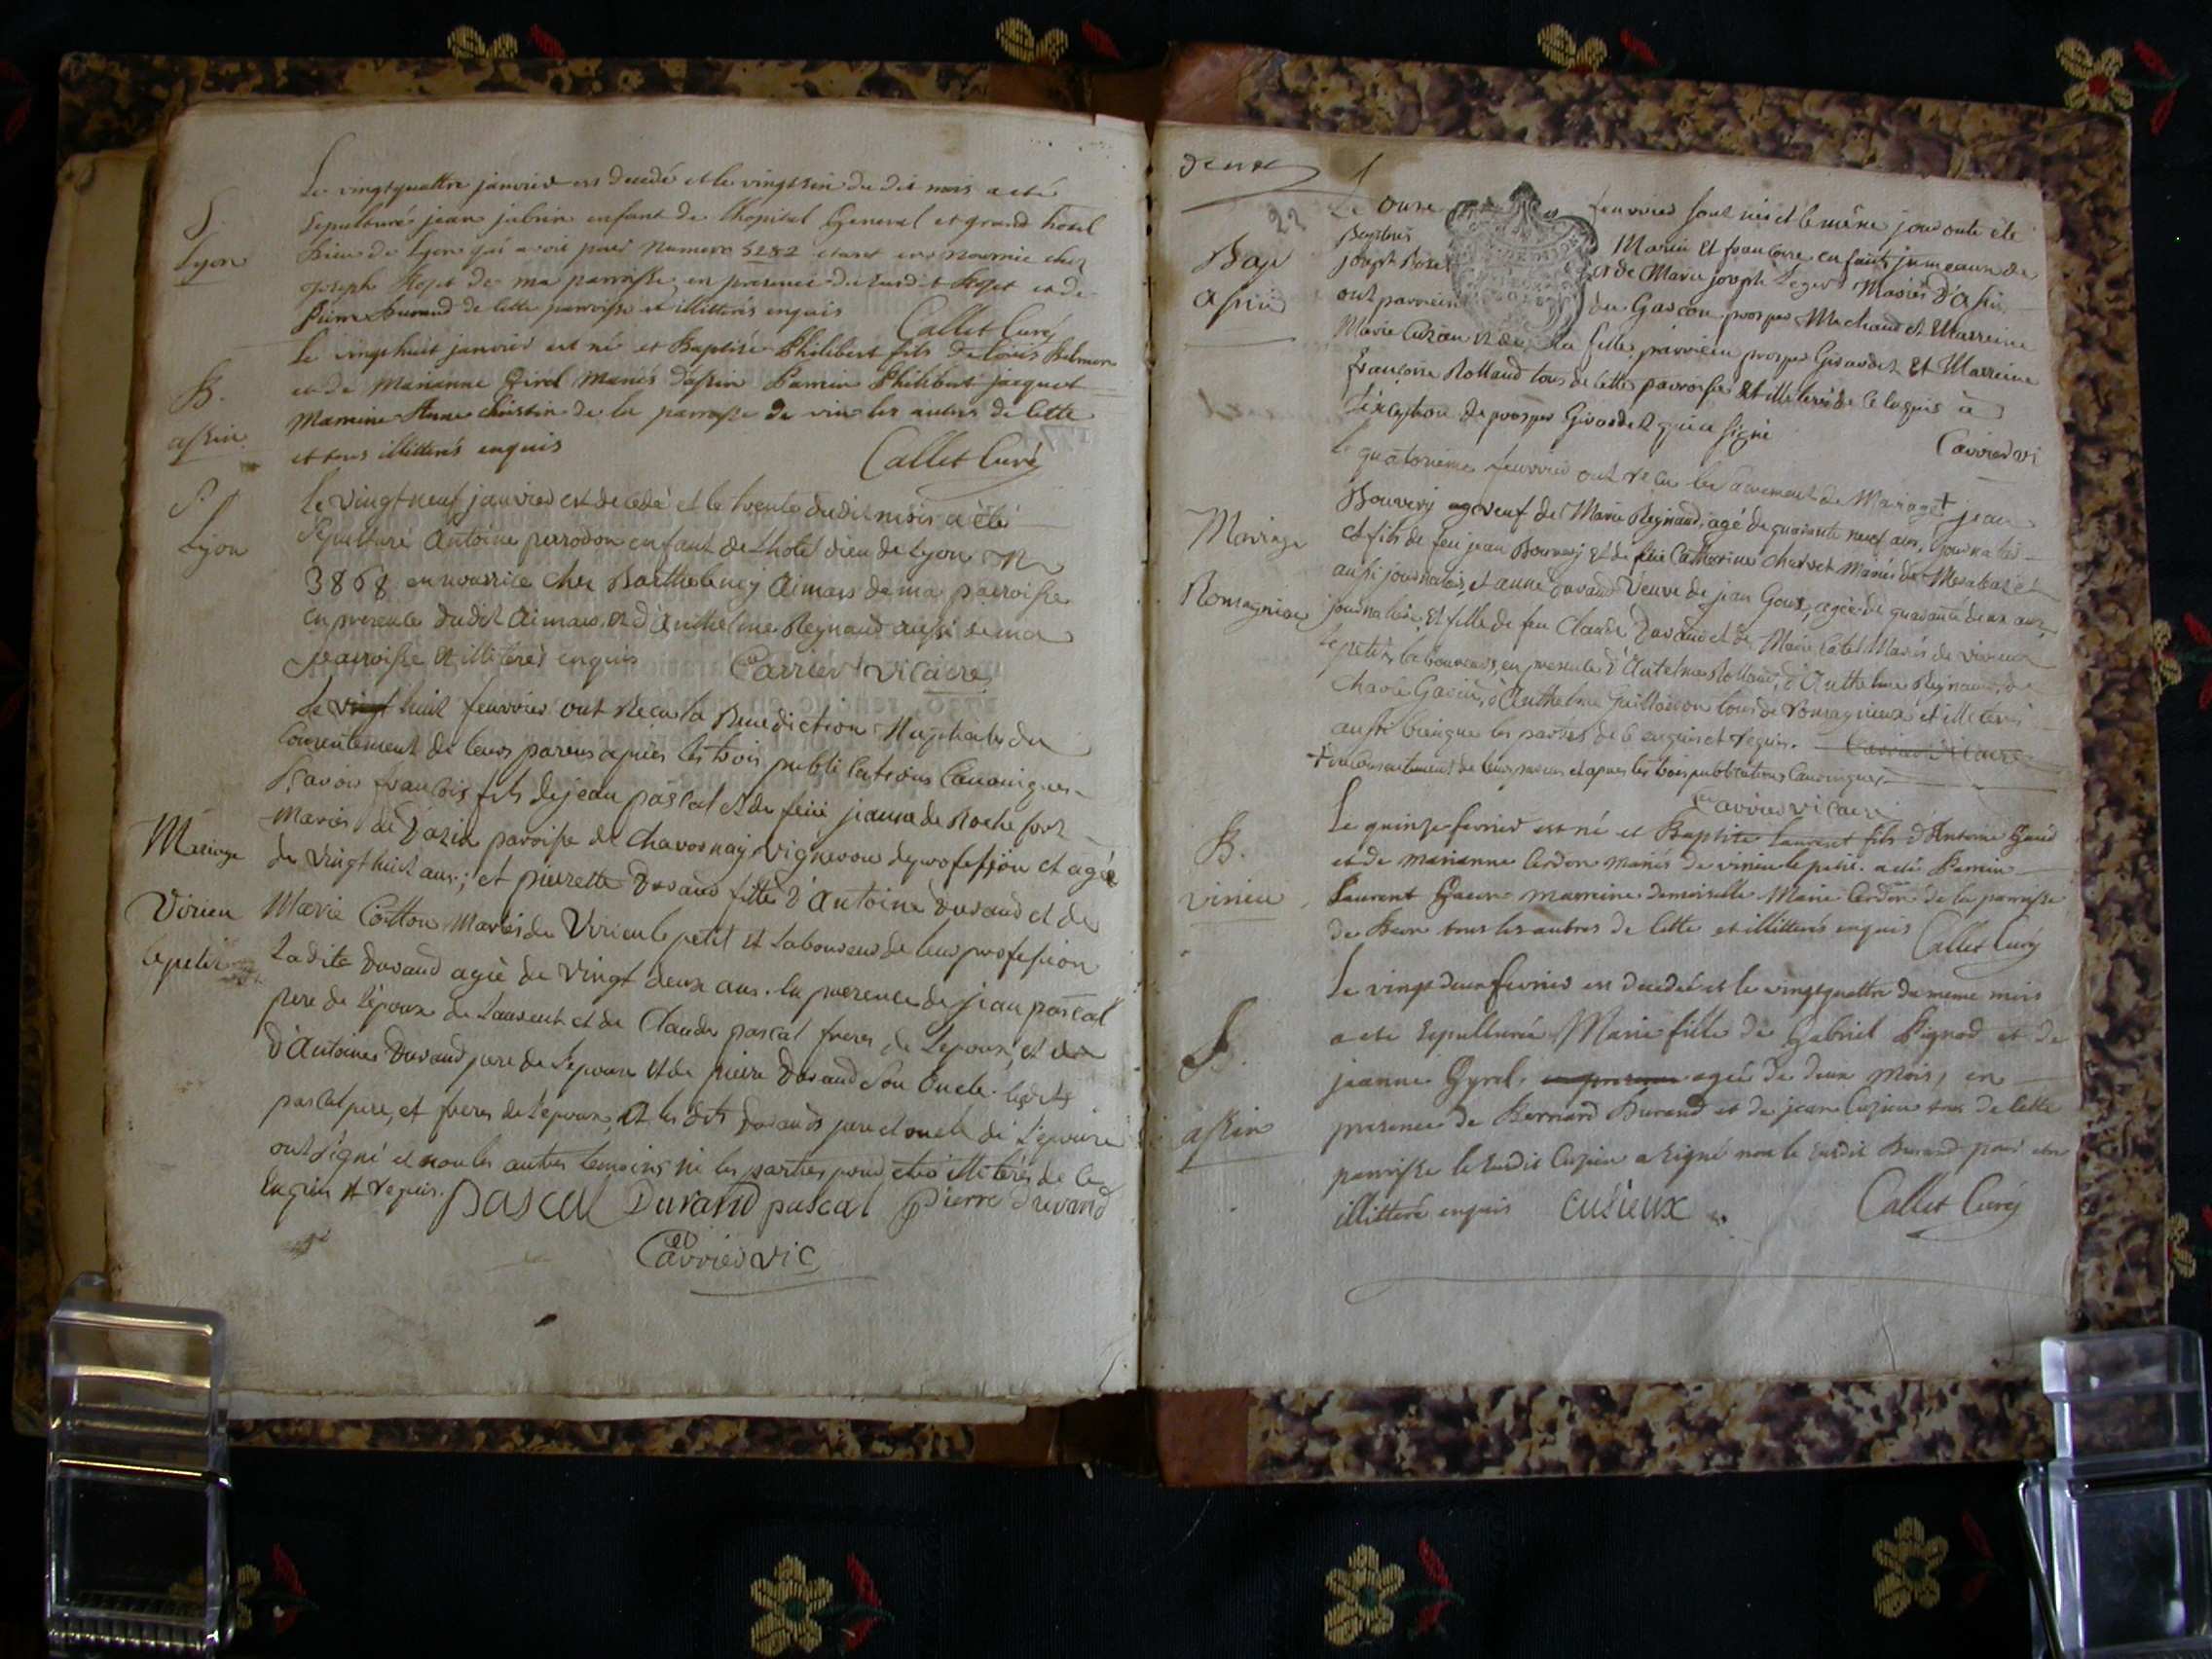 S.
Lyon
Le vingtquattre janvier est decedé et le vingtsix du dit mois a eté
sepulturé jean jabrin enfant de lhopital General et grand hotel
Dieu de Lyon qui avoit pour numero 5282 etant en nourrice chez
joseph de ma parroisse en presence du susdit et de
Pierre Durand de cette parroisse et illitterés enquis
Callet Curé
B.
assin
Le vingthuit janvier est né et Baptisé Philibert fils de Louis Belmon
et de Marianne Girel mariés dassin Parrain Philibert jacquet
Marraine Anne Christin de la parroisse de les autres de cette
et tous illitterés enquis
Callet Curé
S.
Lyon
Le vingt neuf janvier est decedé et le trente dudit mois a été
Sepulturé Antoine perrodon enfant de L'hotel dieu de Lyon N
3868 en nourrice chez Barthelemy Aimars de ma parroisse
en presence dudit Aimars et d'Anthelme Reynaud aussi de ma
parroisse et illiterés enquis
Carrier vicaire
Mariage
Virieu
le petit
Le vingt huit feuvrier ont Recu la Benediction Nuptiale du
Consentement de leurs parens après les trois publications Canoniques
Scavoir francois fils de jean pascal et de feüe jeanne de Rochefort
Mariés de Vazin paroisse de Chavornay vigneron de profession et agé
de vingt huit ans; et pierrette Durand fille d'Antoine Durand et de
Marie Cotton Mariés de Virieu le petit et Laboureurs de leur profession
Ladite Durand agée de vingt deux ans. En presence de jean pascal
pere de l'époux de Laurent et de Claude pascal freres de L'epoux, et de
d'Antoine Durand pere de L'epouse et de pierre Durand Son Oncle. lesdits
pascal pere, et freres de L'epoux, et les dits Durands pere et oncle de L'epouse
ont signé et non les autres temoins ni les parties pour etre illiterés de ce
Enquis et requis.
pascal Durand pascal pierre durand
Carrier vic
deux
22
Bap
assin
Le onze feuvrier sont nés et le même jour ont eté
Baptisés Marie et francoise enfants jumeaux de
joseph et de Marie joseph Leger Mariés D'assin
ont parrein du Garcon prosper Michaud et Marreine
Marie de la fille, parrein prosper Girardet et Marreine
francoise Rolland tous de cette parroisse et illiterés de ce enquis à
L'exception de prosper Girardet qui a signé
Carrier vi
Mariage
Romagnieu
Le quatorzieme feuvrier ont recu le Sacrement de Mariage + jean
Bouvery veuf de Marie Reynaud, agé de quarante neuf ans, journalier
et fils de feu jean Bouvery et de feue Catherine Charvet Mariés de
aussi journaliers, et anne Durand Veuve de jean Goux, agée de quarante deux ans
journaliere, et fille de feu Claude Durand et de Marie Catel Mariés de Virieux
le petit, laboureurs, en presence d'Antelme Rolland, d'Anthelme Reynaud, de
Charle Gavin, d'Anthelme Guillaison tous de romagnieux et illiterés
aussi bien que les parties de ce enquis et requis. Carrier vicaire
+ du Consentement de leurs parens et apres les trois publications Canoniques
Carrier vicaire
B.
virieu
Le quinze fevrier est né et Baptisé Laurent fils d'Antoine
et de marianne Cerdon mariés de virieu le petit. a eté Parrain
Laurent marraine demoiselle Marie Cerdon de la parroisse
de Beon tous les autres de cette et illitterés enquis
Callet Curé
S.
assin
Le vingt deux fevrier est decedée et le vingtquattre du meme mois
a eté sepulturée Marie fille de Gabriel Pignod et de
jeanne Gyrel, en presence agée de deux mois, en
presence de Bernard Durand et de jean Cuzieu tous de cette
parroisse le susdit Cuzieu a signé non le susdit Durand pour etre
illitteré enquis
Cusieux
Callet Curé